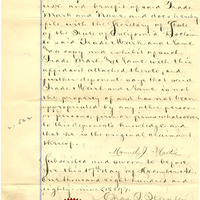 use and benefit of said Trade
Mark and Name, and does hereby
file with the Secretary of State
of the State of California a
said Trade Mark and Name
a copy and exhibit of said
Trade Mark & Name with this
affidavit attached thereto, and
further deposes and says that said
Trade Mark and Name is not
the property of and has not been
appropriated by any other person
or persons, firm or firms whatsoever
to this deponent's knowledge and
that he is the original claimant
thereof.
Subscribed and sworn to before
me this 17th day of December A.D.
eighteen hundred and
eighty nine